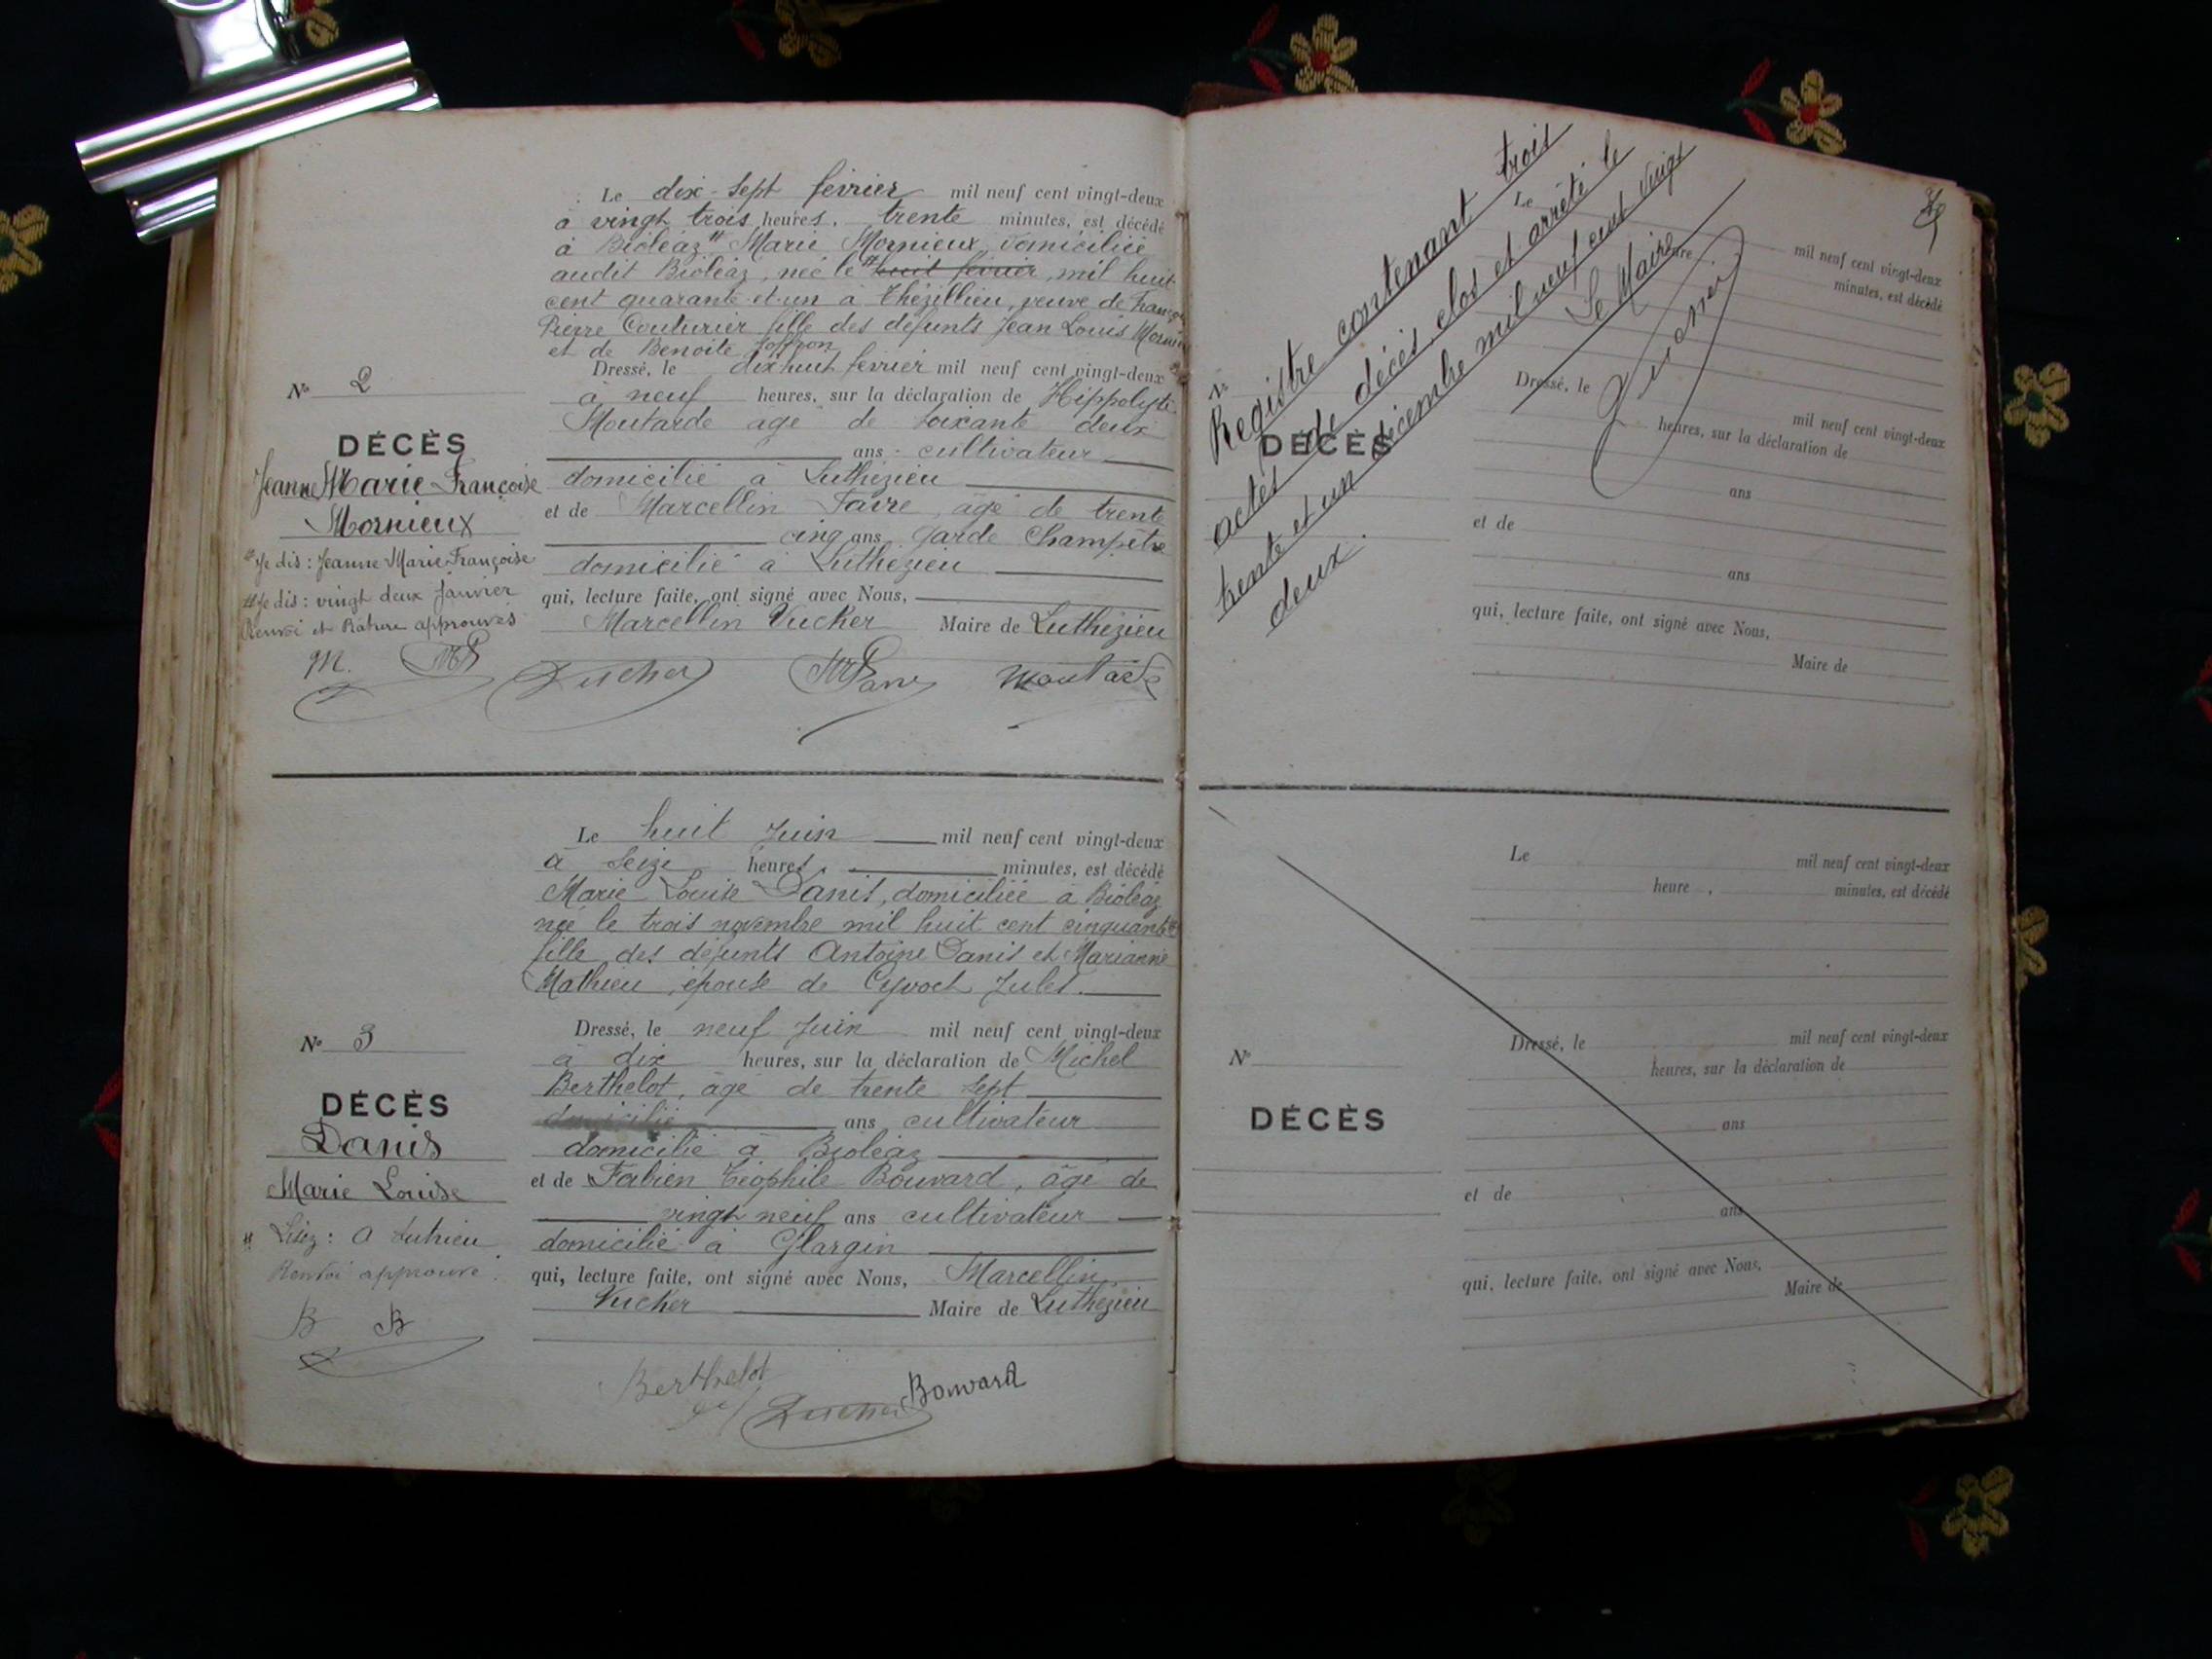 Le dix-sept février mil neuf cent vingt-deux
à vingt trois heures. trente minutes, est décédé
à Bioléaz # Marie Mornieux, domiciliée
audit Bioléaz, née le # huit février, mil huit
cent quarante et un à Thézillieu, veuve de Franço
Pierre Couturier fille des défunts Jean Louis Morni
et de Benoite
Dressé, le dix huit février mil neuf cent vingt-deux
à neuf heures, sur la déclaration de Hippolyte
Moutarde agé de soixante deux
ans cultivateur
domicilié à Luthézieu
et de Marcellin Favre, âgé de trente
cinq ans garde Champêtre
domicilié à Luthézieu
qui, lecture faite, ont signé avec Nous,
Marcellin Vucher Maire de Luthézieu
N° 2
DÉCÈS
Jeanne Marie Françoise
Mornieux
# Je dis : Jeanne Marie Françoise
# Je dis : vingt deux Janvier
Renvoi et Rature approuvés
M.
Vucher Moutarde
Le huit Juin mil neuf cent vingt-deux
à Seize heures, minutes, est décédé
Marie Louise Danis, domiciliée à Bioléaz
née le trois novembre mil huit cent cinquante #
fille des défunts Antoine Danis et Marianne
Mathieu, épouse de Cyvoct Jules.
Dressé, le neuf Juin mil neuf cent vingt-deux
à dix heures, sur la déclaration de Michel
Berthelot, âgé de trente sept
domicilié ans cultivateur
domicilié à Bioléaz
et de Fabien Téophile Bouvard, âgé de
vingt neuf ans cultivateur
domicilié à Glargin
qui, lecture faite, ont signé avec Nous, Marcellin
Vucher Maire de Luthézieu
N° 3
DÉCÈS
Danis
Marie Louise
# Lisez : a Sutrieu
Renvoi approuvé.
B B
Berthelot
Vucher Bouvard
Registre contenant trois
actes de décès, clos et arrêté le
trente et un décembre mil neuf cent vingt
deux.
Le Maire
Vucher
N°
DÉCÈS
Le mil neuf cent vingt-deux
heure , minutes, est décédé
Dressé, le mil neuf cent vingt-deux
heures, sur la déclaration de
ans
et de
ans
qui, lecture faite, ont signé avec Nous,
Maire de
N°
DÉCÈS
Le mil neuf cent vingt-deux
heure , minutes, est décédé
Dressé, le mil neuf cent vingt-deux
heures, sur la déclaration de
ans
et de
ans
qui, lecture faite, ont signé avec Nous,
Maire de